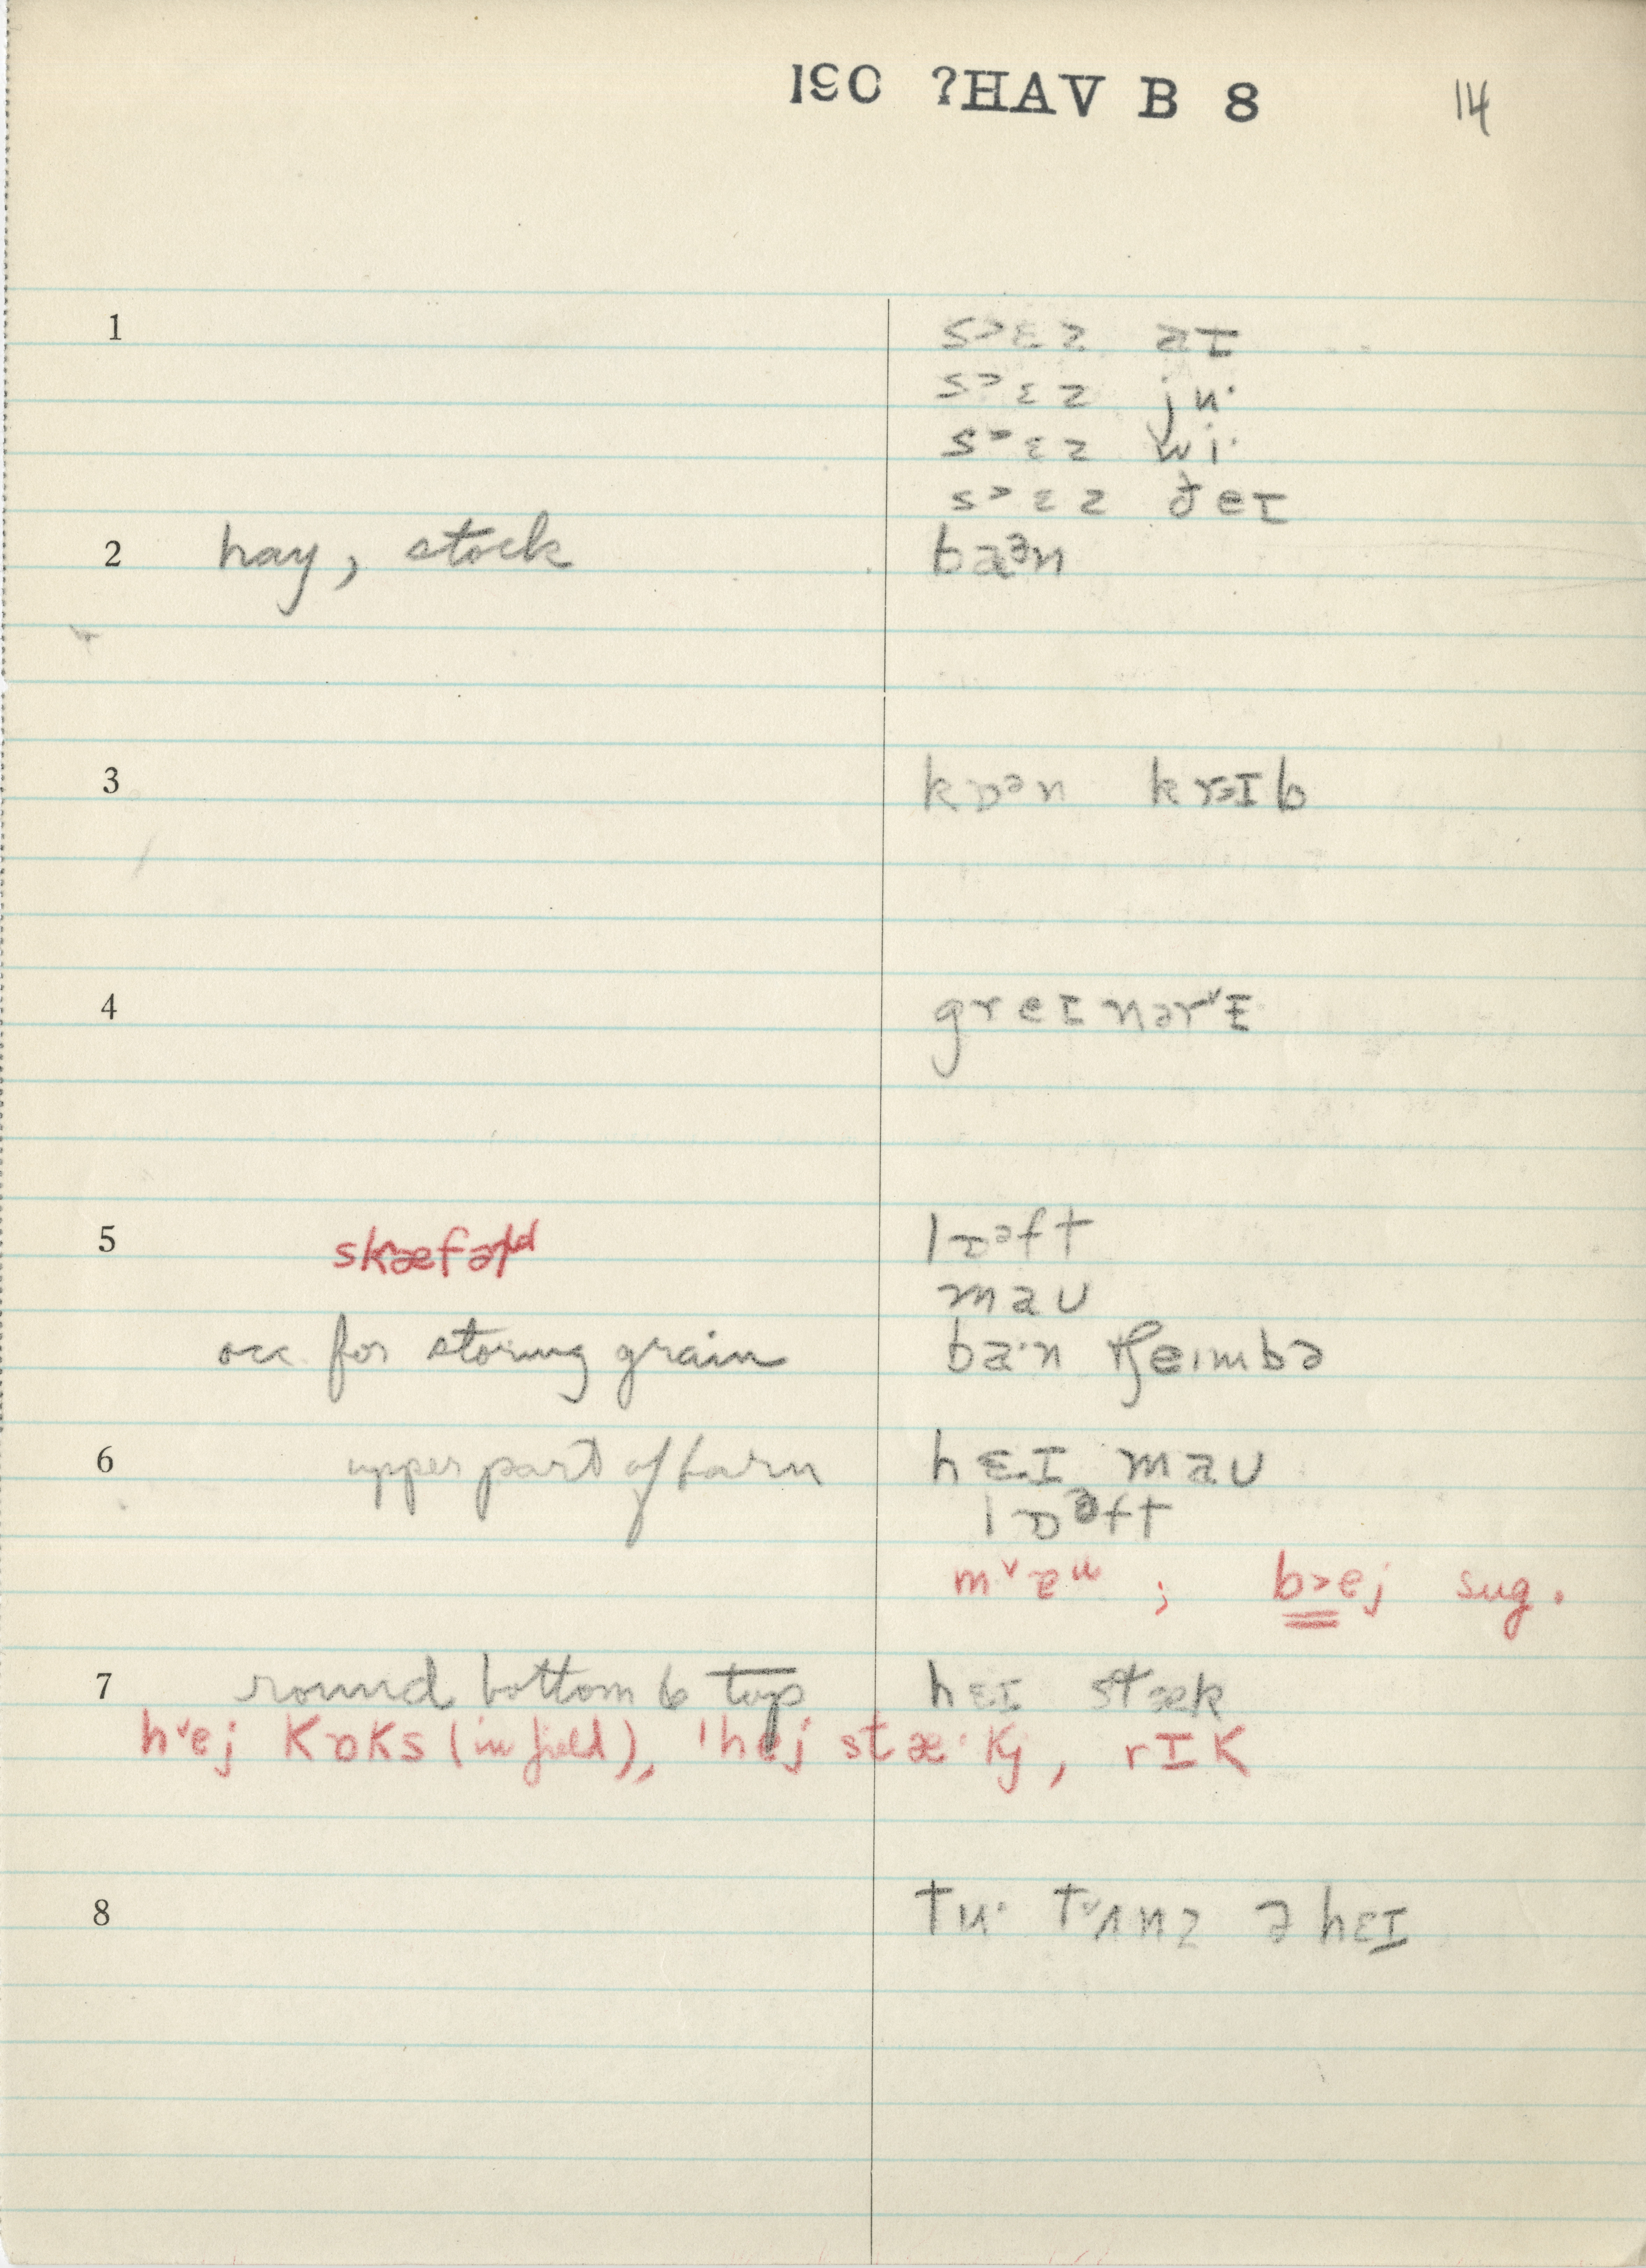 190 ?HAV B 8 14
1 s˃ɛz aɪ
s˃ɛz ju·
s˃ɛz wi·
s˃ɛz ðeɪ
2 hay, stock baᵊn
3 kɒᵊn krɪb
4 greɪnərˇɪ
5 skæfəld lɒᵊft
maʊ
occ. for storing grain ba·n tʃeɪmbə
6 upper part of barn hɛɪ maʊ
lɒᵊft
mˇ ; b˃ej sug.
7 round bottom & top hɛɪ stæk
hˇej kɒks (in field), ˈhej stæ·kj, rɪk
8 tu· tˇʌnz ə hɛɪ